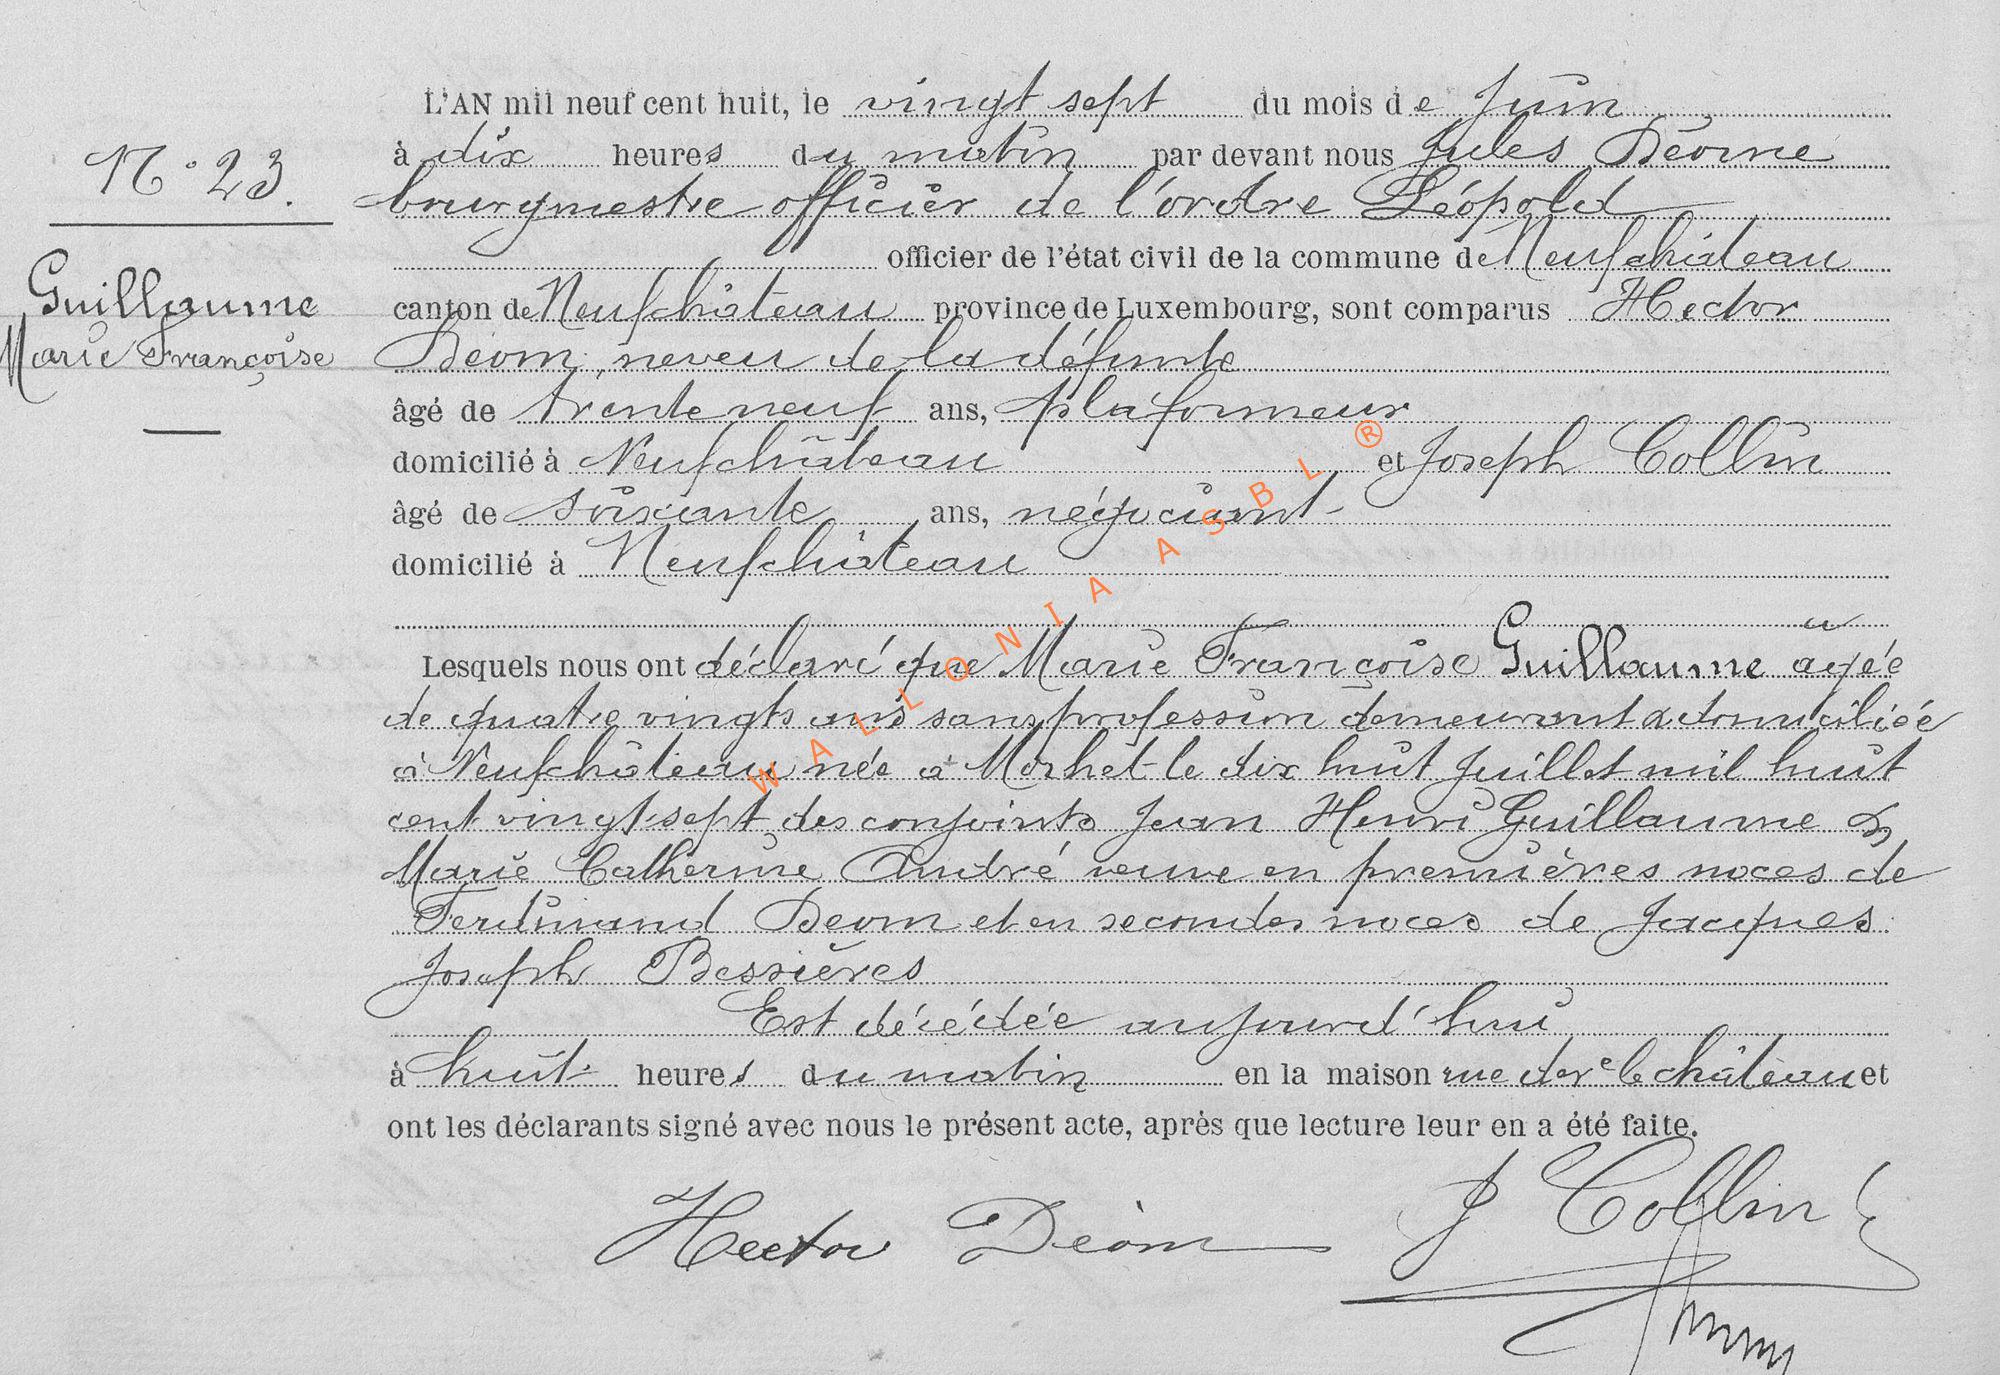 L'AN mil neuf cent huit, le vingt sept du mois de Juin
N° 23.
à dix heures du matin par devant nous Jules Deome
bourgmestre officier de l'ordre Léopold
officier de l'état civil de la commune de Neufchâteau
Guillaume
Marie Françoise
canton de Neufchâteau province de Luxembourg, sont comparus Hector
Deom, neveu de la défunte
âgé de trente neuf ans, plafonneur
domicilié à Neufchâteau et Joseph Collin
âgé de soixante ans, négociant
domicilié à Neufchâteau
Lesquels nous ont déclaré que Marie Françoise Guillaume agée
de quatre vingts ans sans profession demeurant & domiciliée
à Neufchâteau née à Morhet le dix huit Juillet mil huit
cent vingt-sept des conjoints Jean Henri Guillaume &
Marie Catherine André veuve en premières noces de
Ferdinand Deom et en secondes noces de Jacques
Joseph Bessières
Est décédée aujourd'hui
à huit heures du matin en la maison rue der^e le château et
ont les déclarants signé avec nous le présent acte, après que lecture leur en a été faite.
Hector Déom
J Collin
WALLONIA ASBL ®